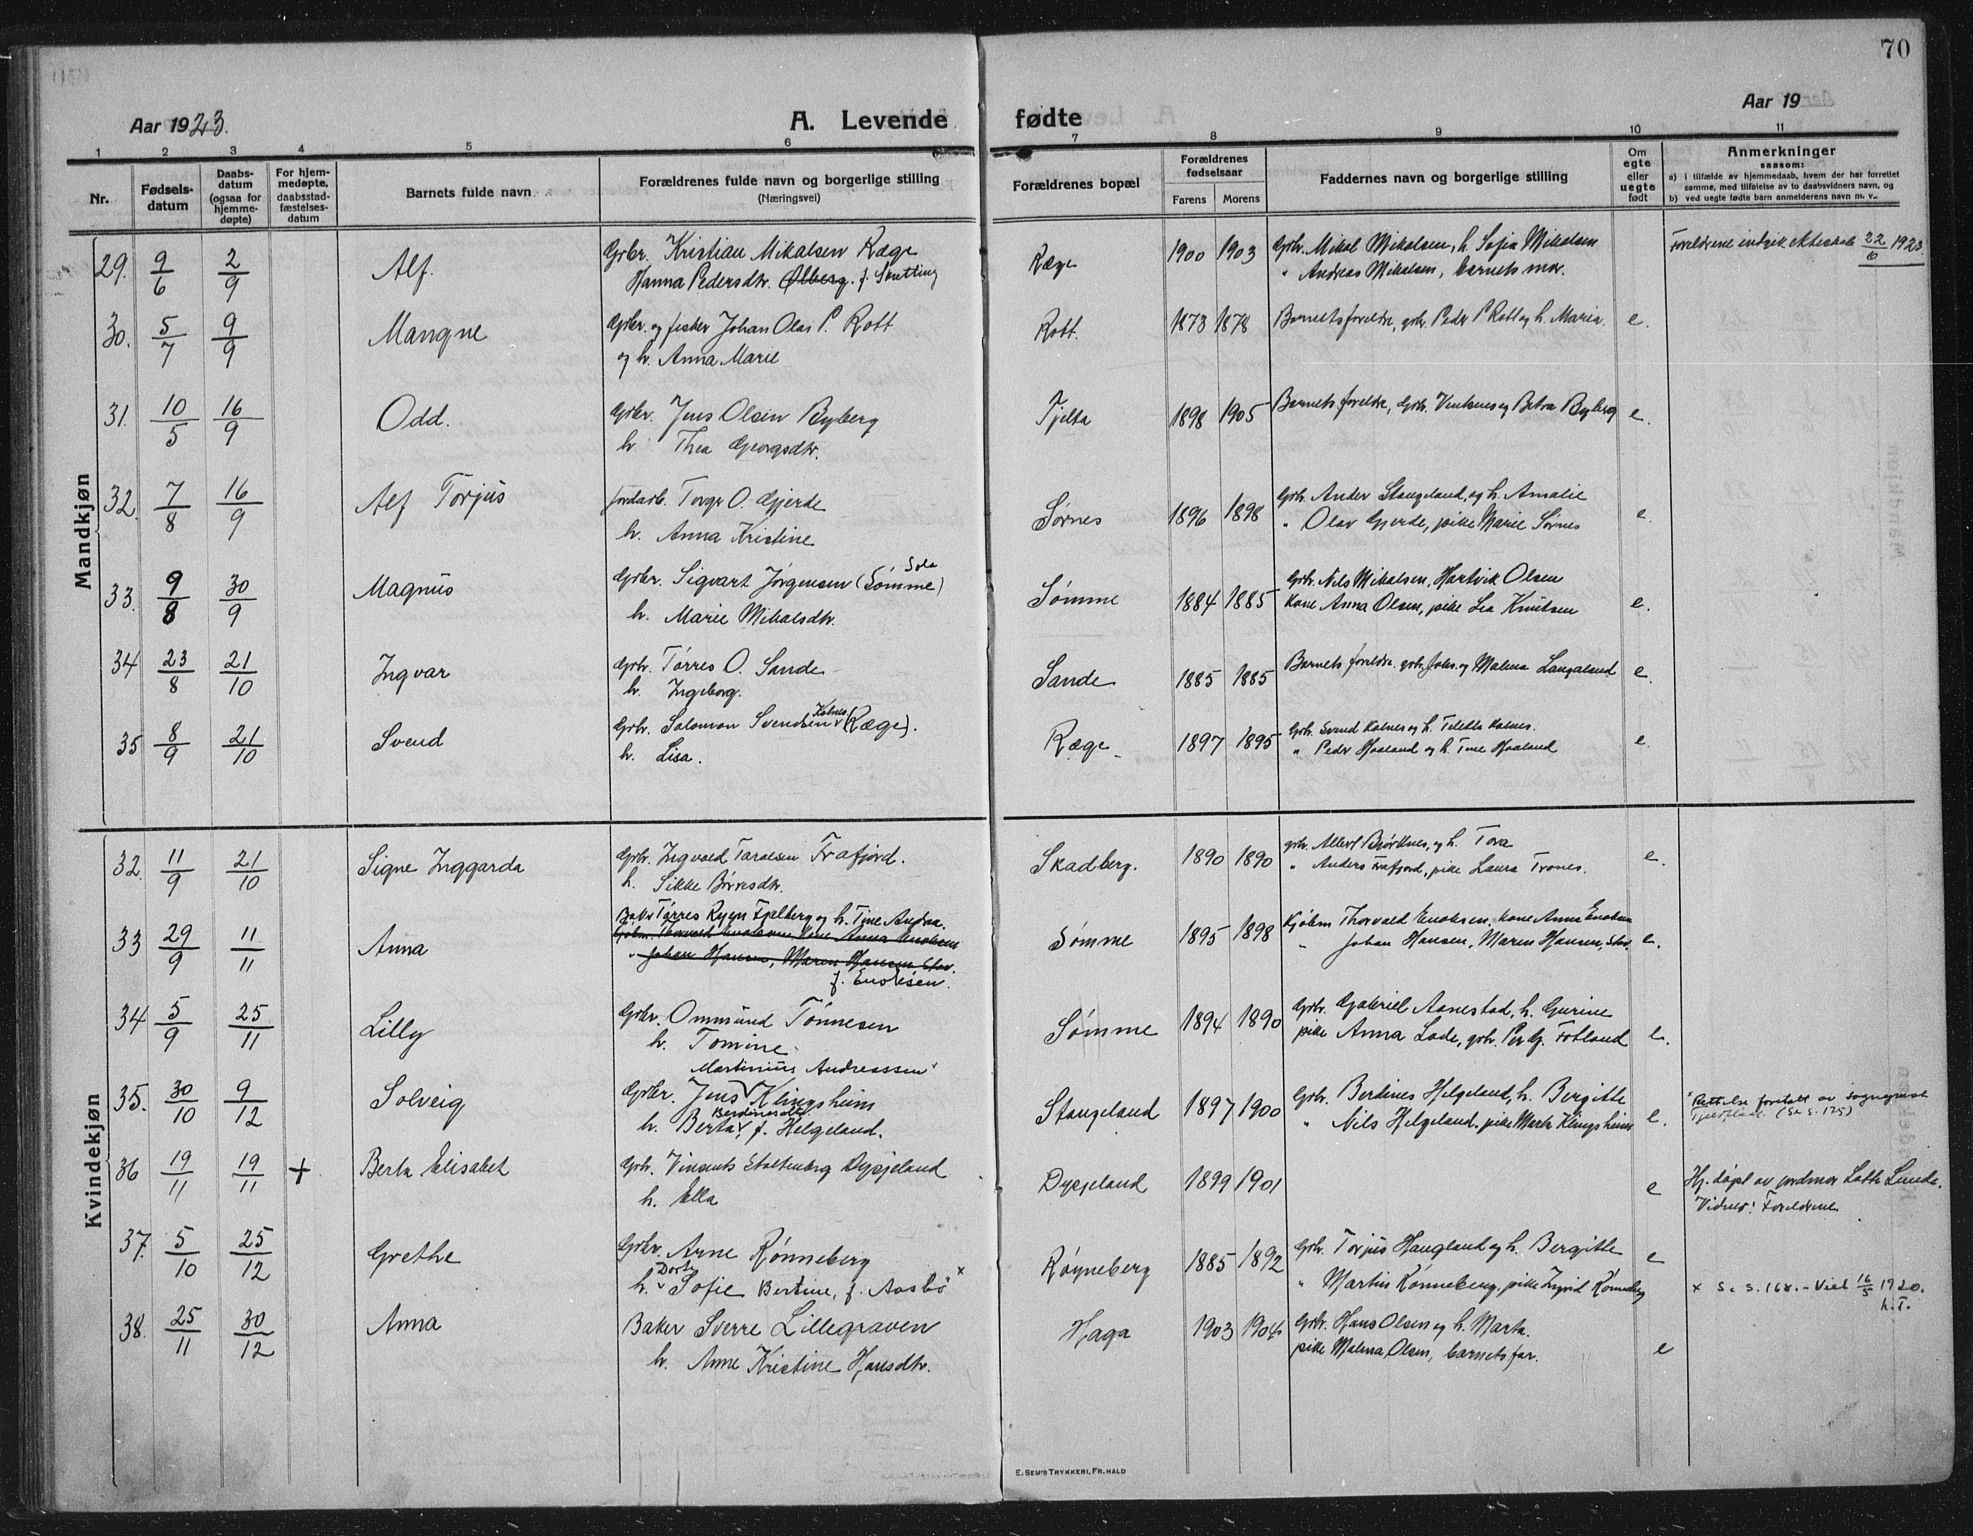 70
Aar 1923. A. Levende fødte Aar 19
1 2 3 4 5 6 7 8 9 10 11
Nr. Fødsels-datum Daabs-datum (ogsaa for hjemme-døpte) For hjem-medøpte, daabsstad-fæstelses-datum Barnets fulde navn Forældrenes fulde navn og borgerlige stilling (Næringsvei) Forældrenes bopæl Forældrenes fødselsaar Farens Morens Faddernes navn og borgerlige stilling Om egte eller uegte født Anmerkninger saasom: a) i tilfælde av hjemmedaab, hvem der har forrettet samme, med tilføielse av to daabsvidners navn, og b) ved uegte fødte barn anmelderens navn m. v.
Mandkjøn
29. 9/6 2/9 Alf. Grbr. Kristian Mikalsen Ræge Ræge 1900 1903 Grbr. Mikal Mikalsen, h. Sofia Mikalsen Foreldrene indgik ekteskab 22/6 1923
Hanna Pedersdtr. Ølberg. f. Snetting " Andreas Mikalsen, barnets mor.
30. 5/7 9/9 Mangne Grbr. og fisker Johan Olai P. Rott Rott. 1873 1878 Barnets foreldre, grbr. Peder P Rott og h. Maria. e.
og h. Anna Marie
31. 10/5 16/9 Odd. Grbr. Jens Olsen Byberg Tjelta 1898 1905 Barnets foreldre, Grbr. og Betra Byberg e.
h. Thea Georgsdtr.
32. 7/8 16/9 Alf Torjus Jordarb. Torger O. Gjerde Sørnes 1896 1898 Grbr. Ander Stangeland, og h. Amalie e.
h. Anna Kristine " Olav Gjerde, pike Marie Sørnes
33. 9/8 30/9 Magnus Grbr. Sigvart Jørgensen (Sømme) Sola Sømme 1884 1885 Grbr. Nils Mikalsen, Hartvik Olsen e.
h. Marie Mikalsdtr. Kone Anna Olsen, pike Lea Knutsen
34 23/8 21/10 Ingvar Grbr. Tørres O. Sande Sande 1885 1885 Barnets foreldre. grbr. Johs. og Malena Langaland e.
h. Ingeborg.
35 8/9 21/10 Svend Grbr. Salomon Svendsen Kolnes (Ræge). Ræge 1897 1895 Grbr. Svend Kolnes og h. Teletta Kolnes. e.
h. Lisa. " Peder Haaland og h. Tine Haaland
Kvindekjøn
32. 11/9 21/10 Signe Inggarda Grbr. Ingvald Taralsen Frafjord. Skadberg. 1890 1890 grbr. Albert Bjørknes, og h. Tora e.
h. Sikke Børresdtr. " Anders Frafjord, pike Laura Trones.
33 29/9 11/11 Anna Baker Tørres Rygn Fjelberg og h. Tine Andrea. Sømme 1895 1898 Kjøbm Thorvald Enoksen, kone Anna Enoksen e.
Kjøbm. Thorvald Enoksen Kone Anna Enoksen " Johan Hansen, Maren Hansen, Stav.
" Johan Hansen, Maren Hansen Stav.
f. Enoksen.
34 5/9 25/11 Lilly Grbr. Ommund Tønnesen Sømme 1894 1890 Grbr. Gabriel Aanestad, h. Gurine e.
h. Tomine. pike Anna Lode, grbr. Per G. Fotland
35. 30/10 9/12 Solveig Grbr. Jens Martinius Andreassen Klingsheim Stangeland 1897 1900 Grbr. Berdines Helgeland, h. Bergitte e.
h. Berta Berdinesdtr, f. Helgeland. " Nils Helgeland. pike Marta Klingsheim
Rettelse foretatt av sogneprest (Se s. 175)
36 19/11 19/11 + Berta Elisabet Grbr. Vincents Stoltenberg Dysjeland Dysjeland 1899 1901 e Hj. døpt av jordmor Lotte Lunde.
h. Ella Vidner: Foreldrene
37. 5/10 25/12 Grethe Grbr. Arne Rønneberg Røyneberg 1885 1892 Grbr. Torjus Haugland og h. Bergitte e
h. Dort Sofie Bertine, f. Aasbö x " Martin Rønneberg, pike Ingrid Rønneberg x S. s. 168. - Viet 16/5 1920. h.T.
38. 25/11 30/12 Anna Baker Sverre Lillegraven Haga 1903 1904 Grbr. Hans Olsen og h. Marta. e
h. Anne Kristine Hansdtr. pike Malena Olsen, barnets far.
E. SEM'S TRYKKERI, FR. HALD